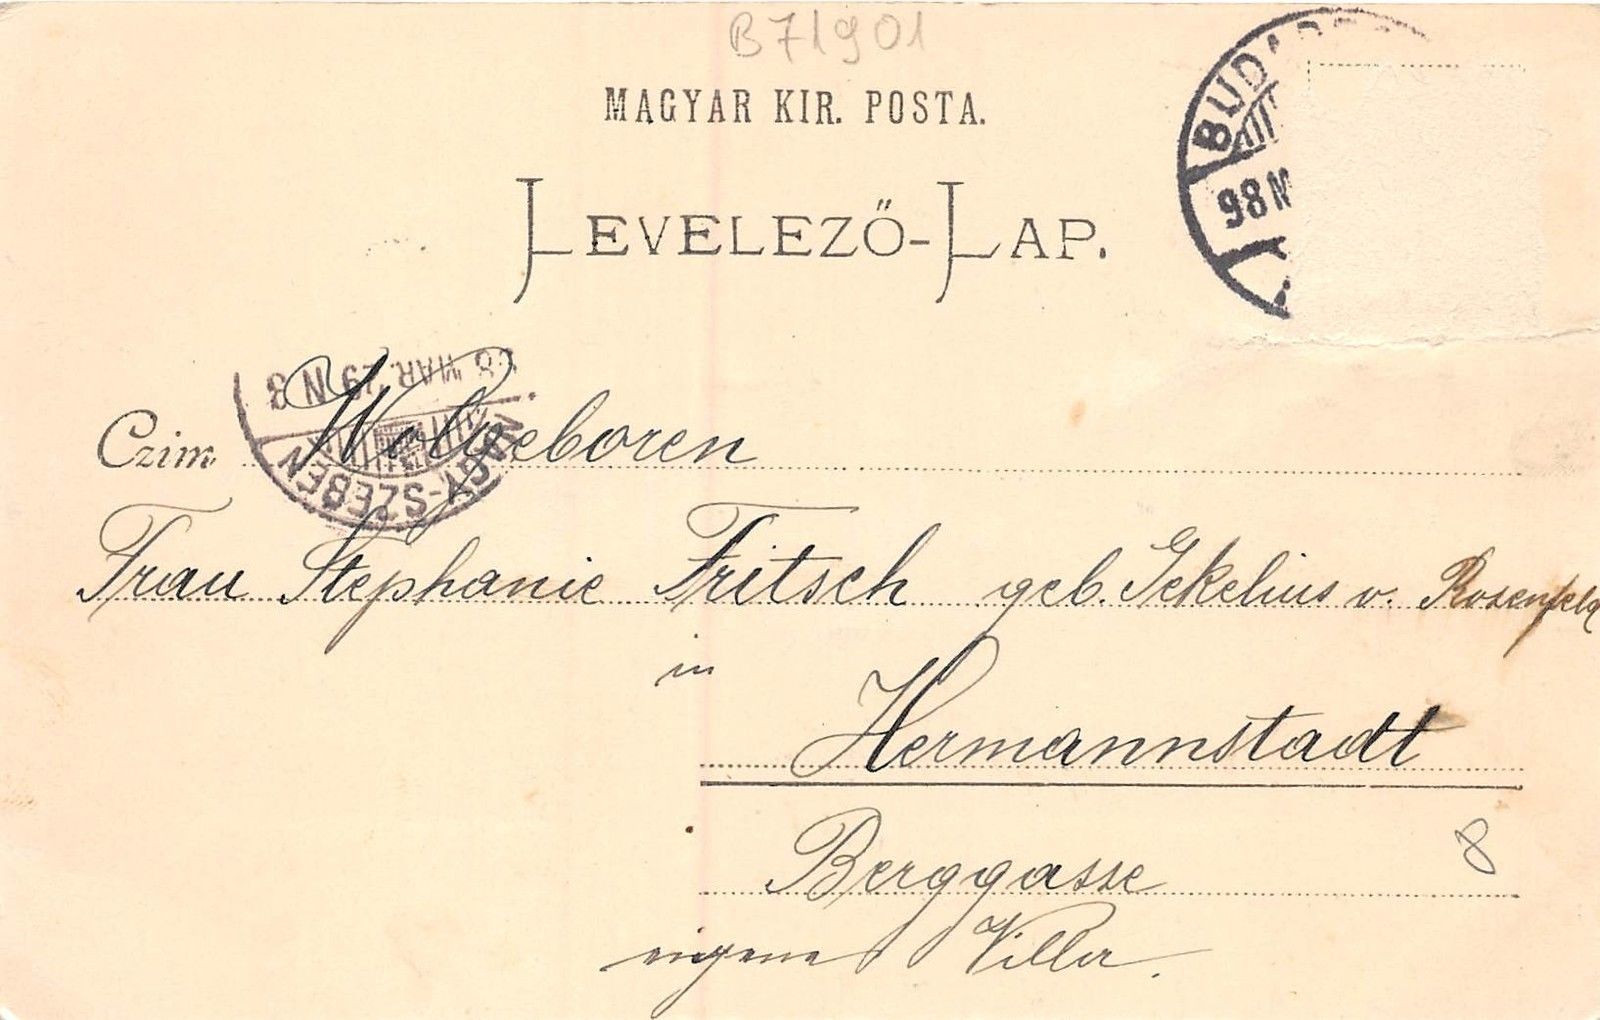 B71901
MAGYAR KIR. POSTA.
LEVELEZŐ-LAP.
BUDAP
98 M
98 MAR. 29 N 8
NAGY-SZEBEN
Czim Wolgeboren
Frau Stephanie Fritsch geb. Jekelius v. Rosenfeld
in
Hermannstadt
Berggasse 8
eigene Villa.